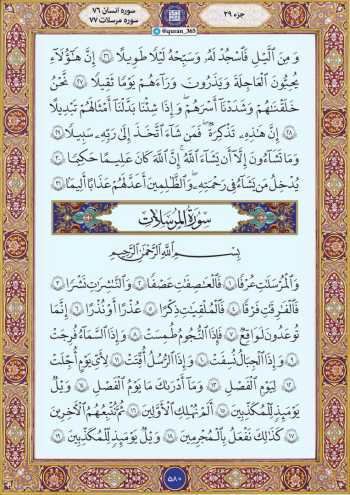 جزء ۲۹
سوره انسان ۷۶
سوره مرسلات ۷۷
@quran_365
وَمِنَ ٱلَّيۡلِ فَٱسۡجُدۡ لَهُۥ وَسَبِّحۡهُ لَيۡلًا طَوِيلًا ۝۲۶ إِنَّ هَـٰٓؤُلَآءِ
يُحِبُّونَ ٱلۡعَاجِلَةَ وَيَذَرُونَ وَرَآءَهُمۡ يَوۡمًا ثَقِيلًا ۝۲۷ نَّحۡنُ
خَلَقۡنَـٰهُمۡ وَشَدَدۡنَآ أَسۡرَهُمۡ وَإِذَا شِئۡنَا بَدَّلۡنَآ أَمۡثَـٰلَهُمۡ تَبۡدِيلًا
۝۲۸ إِنَّ هَـٰذِهِۦ تَذۡكِرَةٌ فَمَن شَآءَ ٱتَّخَذَ إِلَىٰ رَبِّهِۦ سَبِيلًا ۝۲۹
وَمَا تَشَآءُونَ إِلَّآ أَن يَشَآءَ ٱللَّهُ إِنَّ ٱللَّهَ كَانَ عَلِيمًا حَكِيمًا ۝۳۰
يُدۡخِلُ مَن يَشَآءُ فِي رَحۡمَتِهِۦ وَٱلظَّـٰلِمِينَ أَعَدَّ لَهُمۡ عَذَابًا أَلِيمًا ۝۳۱
سورة المرسلات
بِسۡمِ ٱللَّهِ ٱلرَّحۡمَـٰنِ ٱلرَّحِيمِ
وَٱلۡمُرۡسَلَـٰتِ عُرۡفًا ۝۱ فَٱلۡعَـٰصِفَـٰتِ عَصۡفًا ۝۲ وَٱلنَّـٰشِرَٰتِ نَشۡرًا ۝۳
فَٱلۡفَـٰرِقَـٰتِ فَرۡقًا ۝۴ فَٱلۡمُلۡقِيَـٰتِ ذِكۡرًا ۝۵ عُذۡرًا أَوۡ نُذۡرًا ۝۶ إِنَّمَا
تُوعَدُونَ لَوَٰقِعٌ ۝۷ فَإِذَا ٱلنُّجُومُ طُمِسَتۡ ۝۸ وَإِذَا ٱلسَّمَآءُ فُرِجَتۡ
۝۹ وَإِذَا ٱلۡجِبَالُ نُسِفَتۡ ۝۱۰ وَإِذَا ٱلرُّسُلُ أُقِّتَتۡ ۝۱۱ لِأَيِّ يَوۡمٍ أُجِّلَتۡ
۝۱۲ لِيَوۡمِ ٱلۡفَصۡلِ ۝۱۳ وَمَآ أَدۡرَىٰكَ مَا يَوۡمُ ٱلۡفَصۡلِ ۝۱۴ وَيۡلٌ
يَوۡمَئِذٍ لِّلۡمُكَذِّبِينَ ۝۱۵ أَلَمۡ نُهۡلِكِ ٱلۡأَوَّلِينَ ۝۱۶ ثُمَّ نُتۡبِعُهُمُ ٱلۡأٓخِرِينَ
۝۱۷ كَذَٰلِكَ نَفۡعَلُ بِٱلۡمُجۡرِمِينَ ۝۱۸ وَيۡلٌ يَوۡمَئِذٍ لِّلۡمُكَذِّبِينَ ۝۱۹
۵۸۰